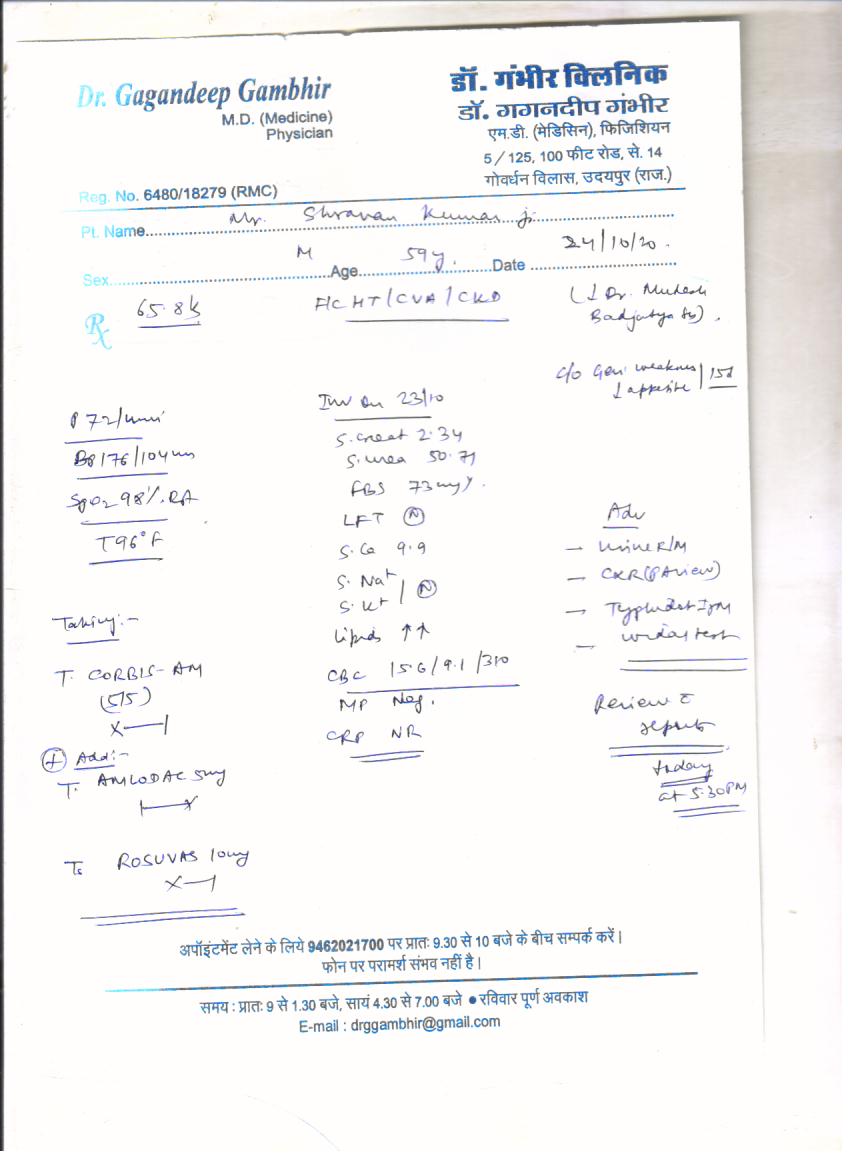 Dr. Gagandeep Gambhir
M.D. (Medicine)
Physician
Reg. No. 6480/18279 (RMC)
डॉ. गंभीर क्लिनिक
डॉ. गगनदीप गंभीर
एम.डी. (मेडिसिन), फिजिशियन
5 / 125, 100 फीट रोड, से. 14
गोवर्धन विलास, उदयपुर (राज.)
Pt. Name Mr. Shravan Kumar ji
Sex M Age 59y. Date 24/10/20.
Rx 65.8k
F/C HT/CVA/CKD
Dr. Mukesh
Badjatya
c/o Gen. weakness
↓ appetite / 15d
P 72/min
BP 176/104mm
SpO2 98%. RA
T 96°F
Taking:-
T. CORBIS-AM
(5/5)
X—|
+ Add:-
T. AMLODAC 5mg
|—X
T. ROSUVAS 10mg
X—|
Inv on 23/10
S. creat 2.34
S. urea 50.71
FBS 73mg%.
LFT (N)
S. Ca 9.9
S. Na+
S. K+ / (N)
Lipids ↑↑
CBC 15.6/9.1/310
MP Neg.
CRP NR
Adv
— Urine R/M
— CXR (PA view)
— Typhidot IgM
— widal test
Review c̄
reports
today
at 5.30PM
अपॉइंटमेंट लेने के लिये 9462021700 पर प्रातः 9.30 से 10 बजे के बीच सम्पर्क करें।
फोन पर परामर्श संभव नहीं है।
समय : प्रातः 9 से 1.30 बजे, सायं 4.30 से 7.00 बजे ● रविवार पूर्ण अवकाश
E-mail : drggambhir@gmail.com